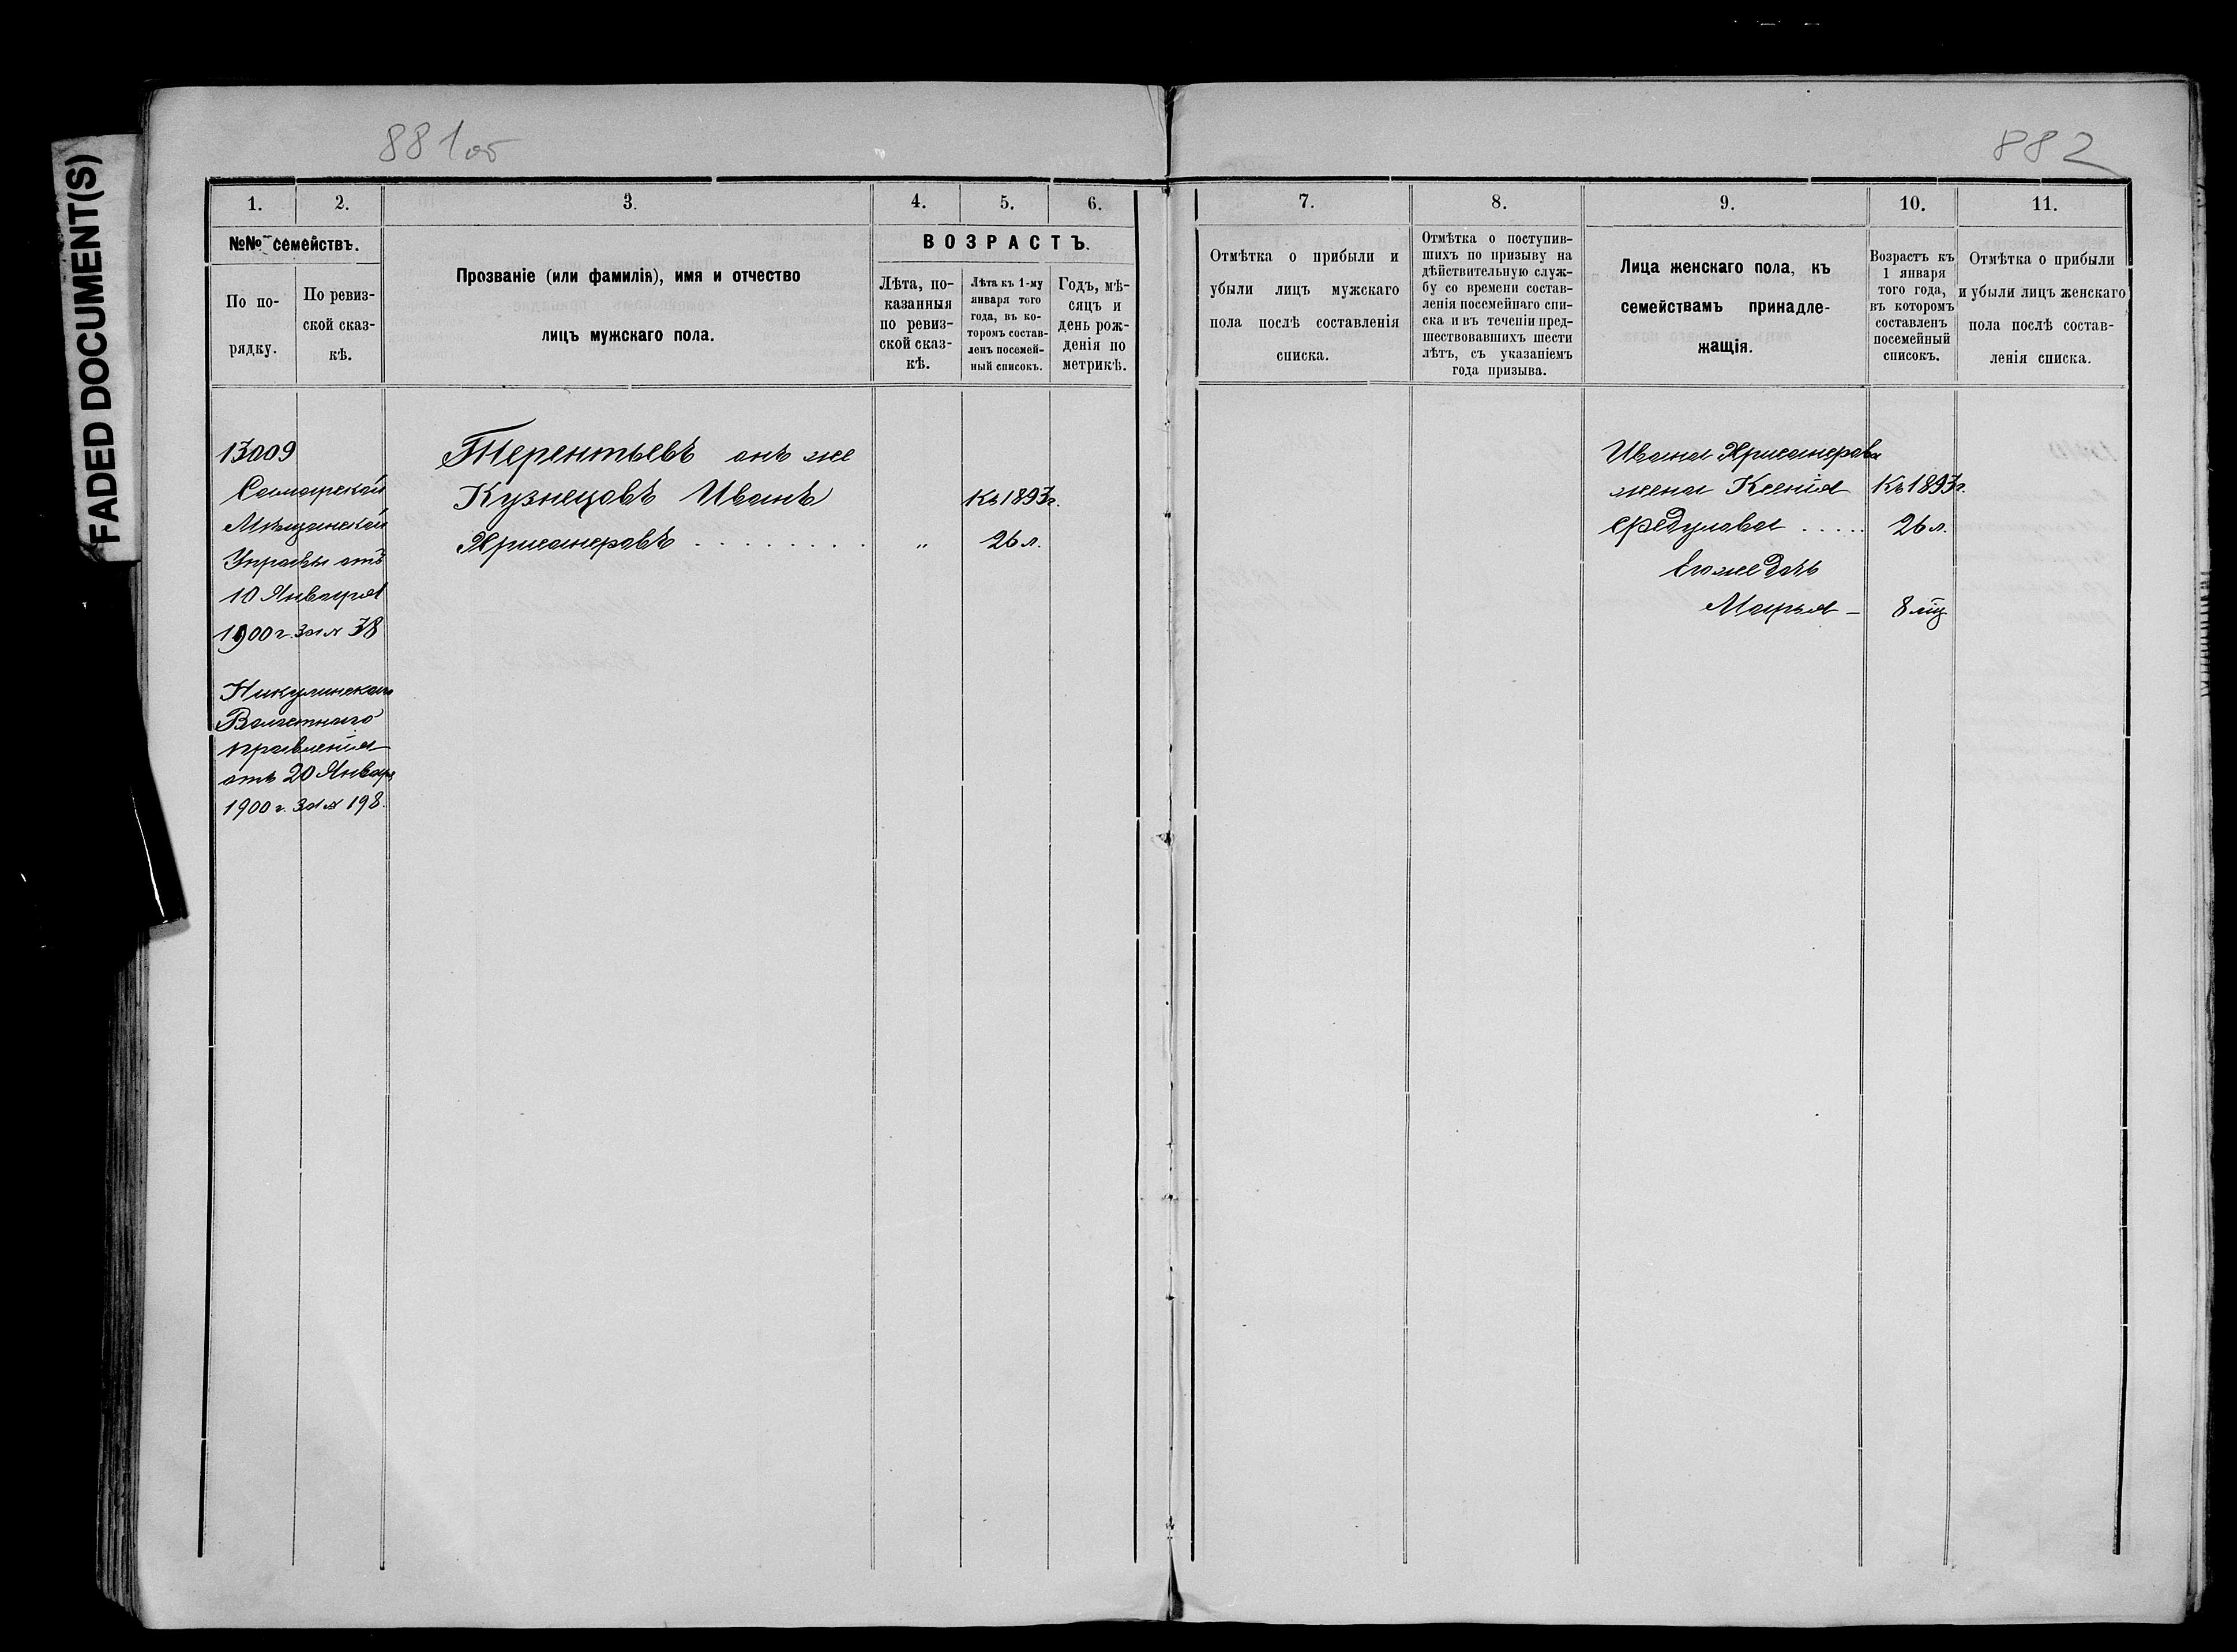 FADED DOCUMENT(S)
881 об
882
1.
2.
3.
4.
5.
6.
№№ семействъ.
По по-
рядку.
По ревиз-
ской сказ-
кѣ.
Прозваніе (или фамилія), имя и отчество
лицъ мужскаго пола.
ВОЗРАСТЪ.
Лѣта, по-
казанныя
по ревиз-
ской сказ-
кѣ.
Лѣта къ 1-му
января того
года, въ ко-
торомъ состав-
ленъ посемей-
ный списокъ.
Годъ, мѣ-
сяцъ и
день рож-
денія по
метрикѣ.
13009
Самарской
Мѣщанской
Управы отъ
10 Января
1900 г. за № 38
Никулинскаго
Волостного
правленія
отъ 20 Января
1900 г. за № 198.
Терентьевъ онъ же
Кузнецовъ Иванъ
Хрисанфовъ . . . . . . . .
"
Къ 1893 г.
26 л.
7.
8.
9.
10.
11.
Отмѣтка о прибыли и
убыли лицъ мужскаго
пола послѣ составленія
списка.
Отмѣтка о поступив-
шихъ по призыву на
дѣйствительную служ-
бу со времени состав-
ленія посемейнаго спи-
ска и въ теченіи пред-
шествовавшихъ шести
лѣтъ, съ указаніемъ
года призыва.
Лица женскаго пола, къ
семействамъ принадле-
жащія.
Возрастъ къ
1 января
того года,
въ которомъ
составленъ
посемейный
списокъ.
Отмѣтка о прибыли
и убыли лицъ женскаго
пола послѣ состав-
ленія списка.
Ивана Хрисанфова
жена Ксенія
Федулова . . . . .
Его же дочь
Марья —
Къ 1893 г.
26 л.
8 мц